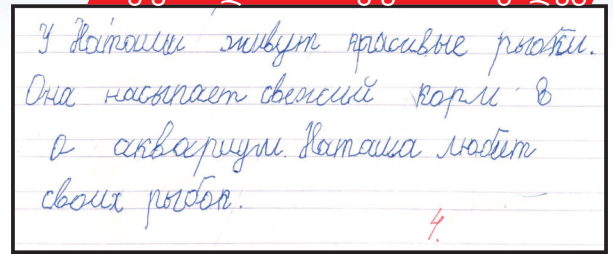 У Наташи живут красивые рыбки.
Она насыпает свежий корм в
о аквариум. Наташа любит
своих рыбок.
4.